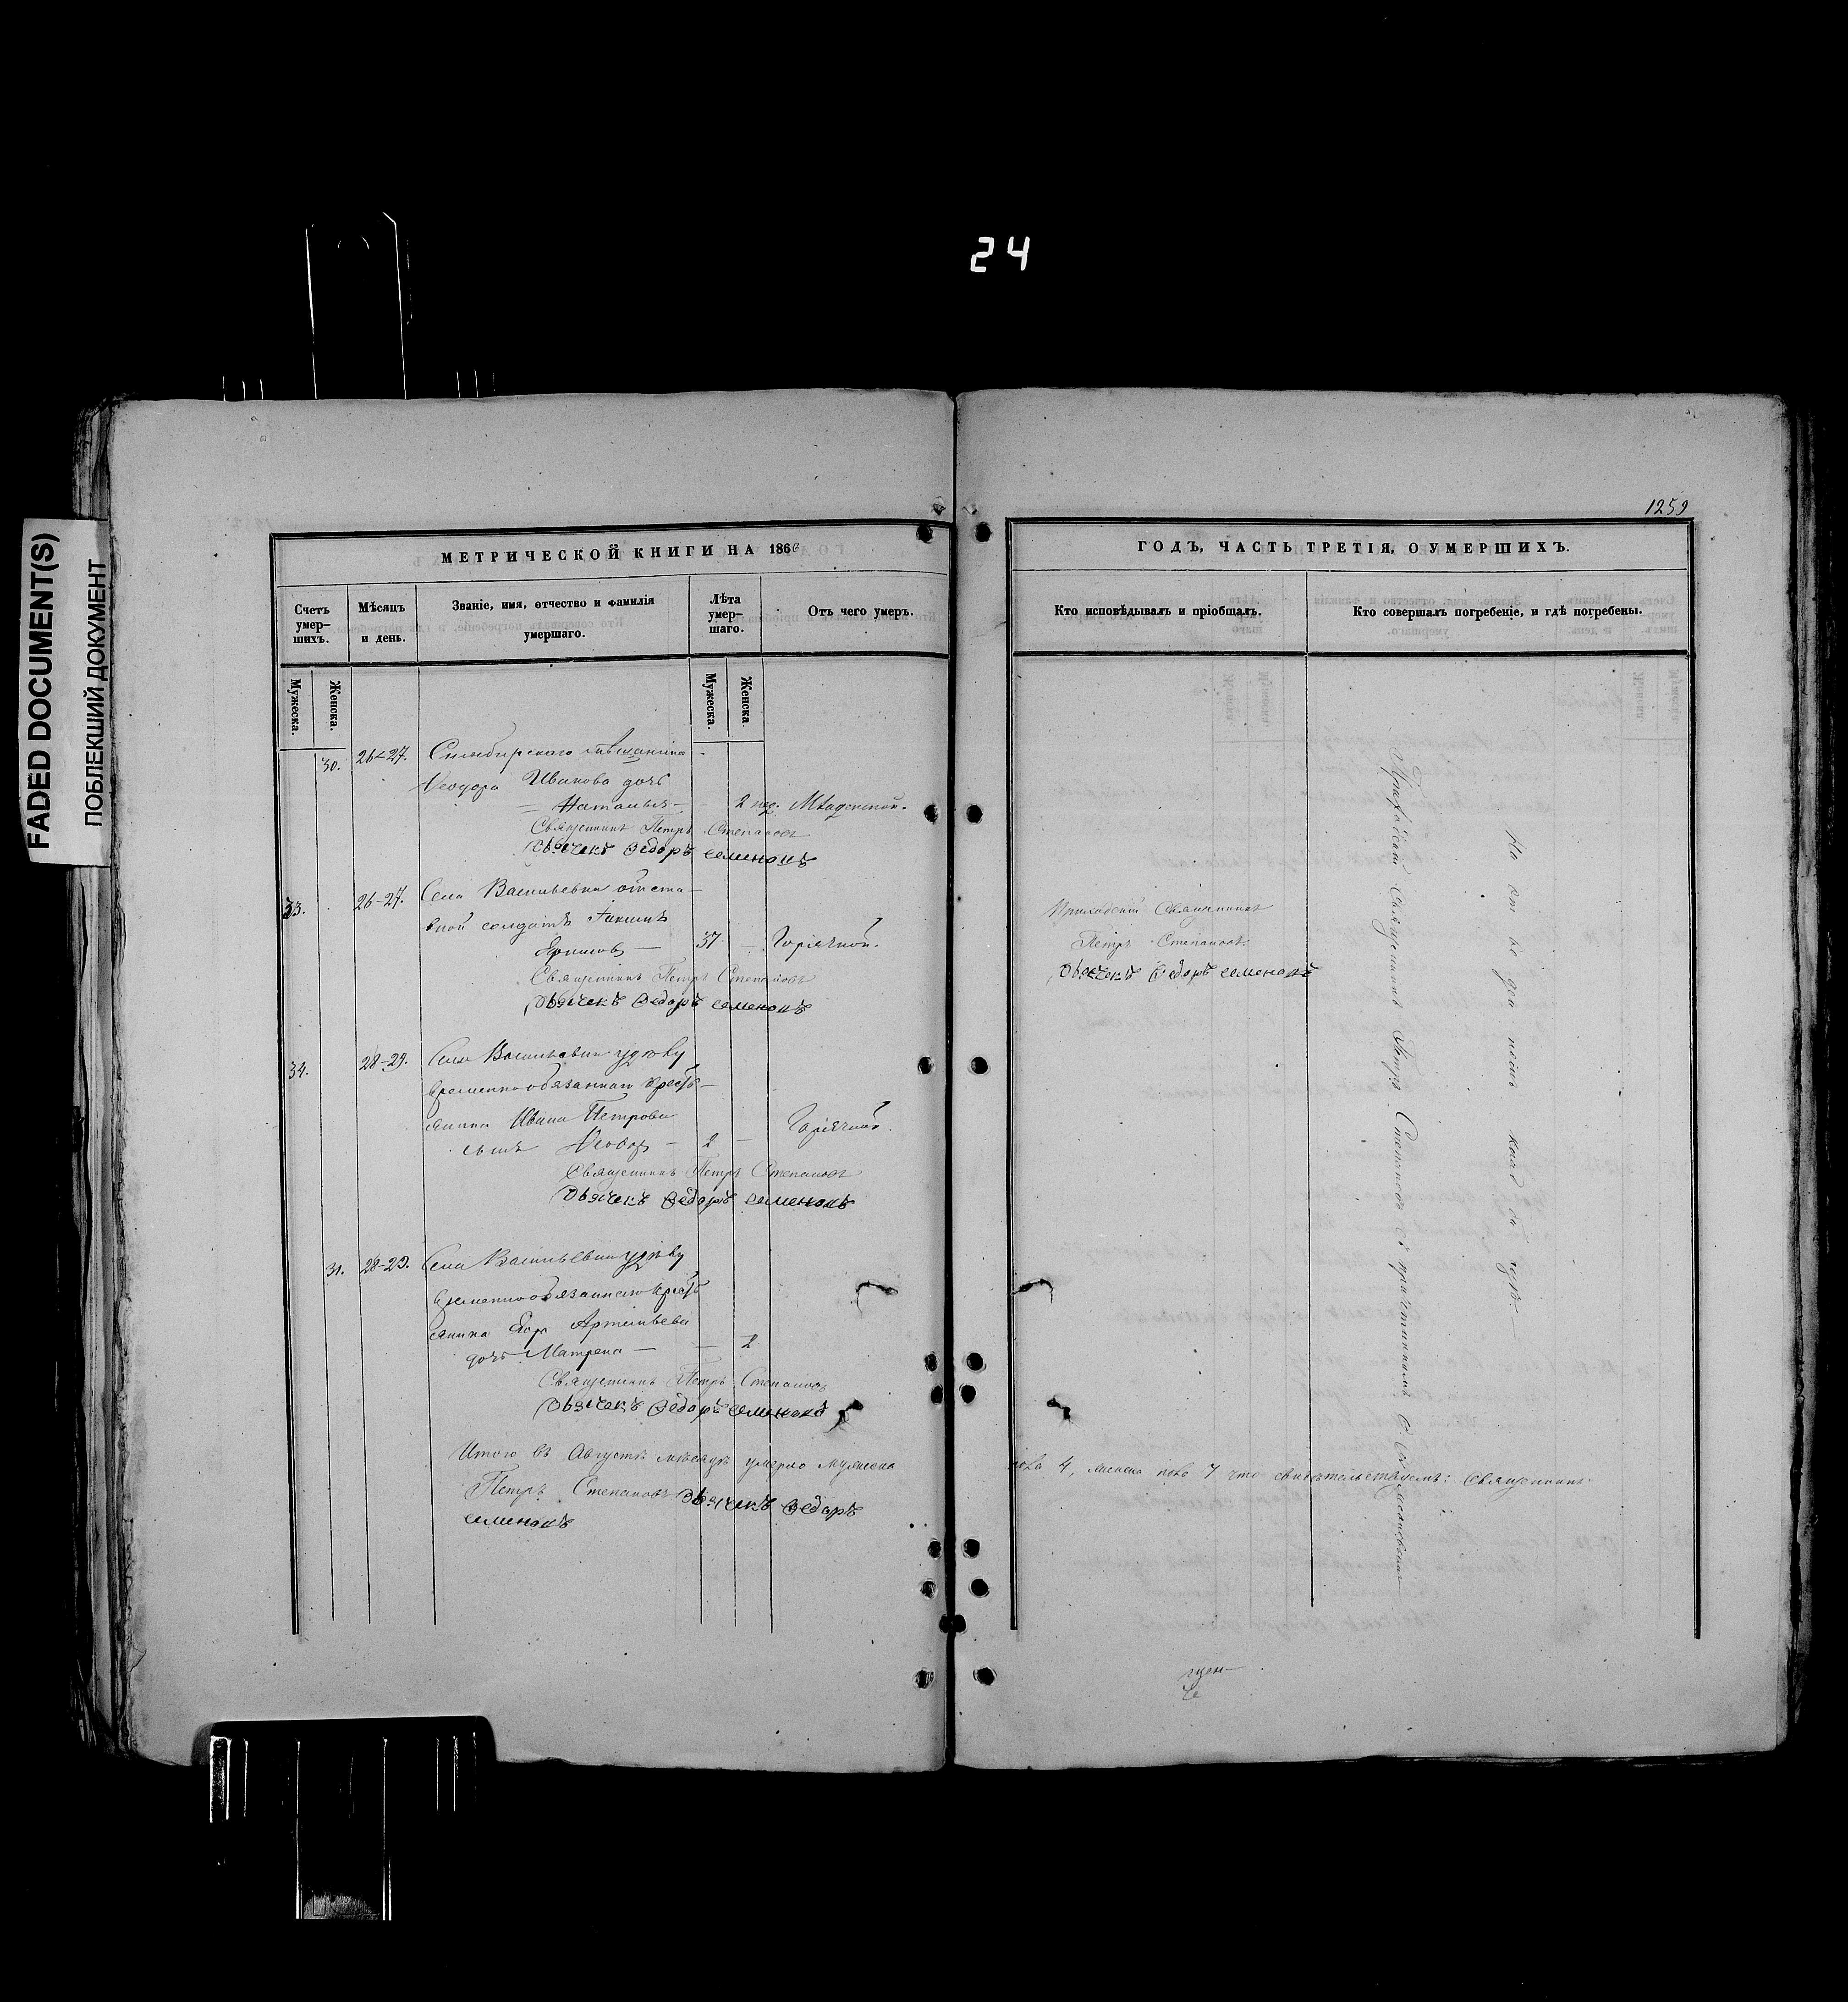 24
FADED DOCUMENT(S)
ПОБЛЕКШИЙ ДОКУМЕНТ
МЕТРИЧЕСКОЙ КНИГИ НА 1866
Счетъ умер-шихъ.
Мѣсяцъ и день.
Званіе, имя, отчество и фамилія
умершаго.
Лѣта умер-шаго.
Отъ чего умеръ.
Мужеска.
Женска.
Мужеска.
Женска.
30. 26-27. Симбирскаго мѣщанина
Ѳеодора Иванова дочь
Наталья 2 нед. Младенской.
Священникъ Петръ Степановъ
Дьячекъ Ѳедоръ Семеновъ
33. 26-27. Села Васильевки отста-
вной солдатъ
37 Горячкой.
Священникъ Петръ Степановъ
Дьячекъ Ѳедоръ Семеновъ
34. 28-29. Села Васильевки
временнообязаннаго кресть-
янина Ивана Петрова
сынъ Ѳеодоръ 2 Горячкой.
Священникъ Петръ Степановъ
Дьячекъ Ѳедоръ Семеновъ
31. 28-29. Села Васильевки
временнообязаннаго кресть
янина Егора Артемьева
дочь Матрена 2
Священникъ Петръ Степановъ
Дьячекъ Ѳедоръ Семеновъ
Итого въ Августѣ мѣсяцѣ умерло мужеска
Петръ Степановъ Дьячекъ Ѳедоръ
Семеновъ
1259
ГОДЪ, ЧАСТЬ ТРЕТІЯ, О УМЕРШИХЪ.
Кто исповѣдывалъ и пріобщалъ.
Кто совершалъ погребеніе, и гдѣ погребены.
Приходскій Священникъ
Петръ Степановъ
Дьячекъ Ѳедоръ Семеновъ
Приходскій Священникъ Петръ Степановъ съ причетникомъ
пола 4, женска пола 7 что свидѣтельствуемъ: Священникъ